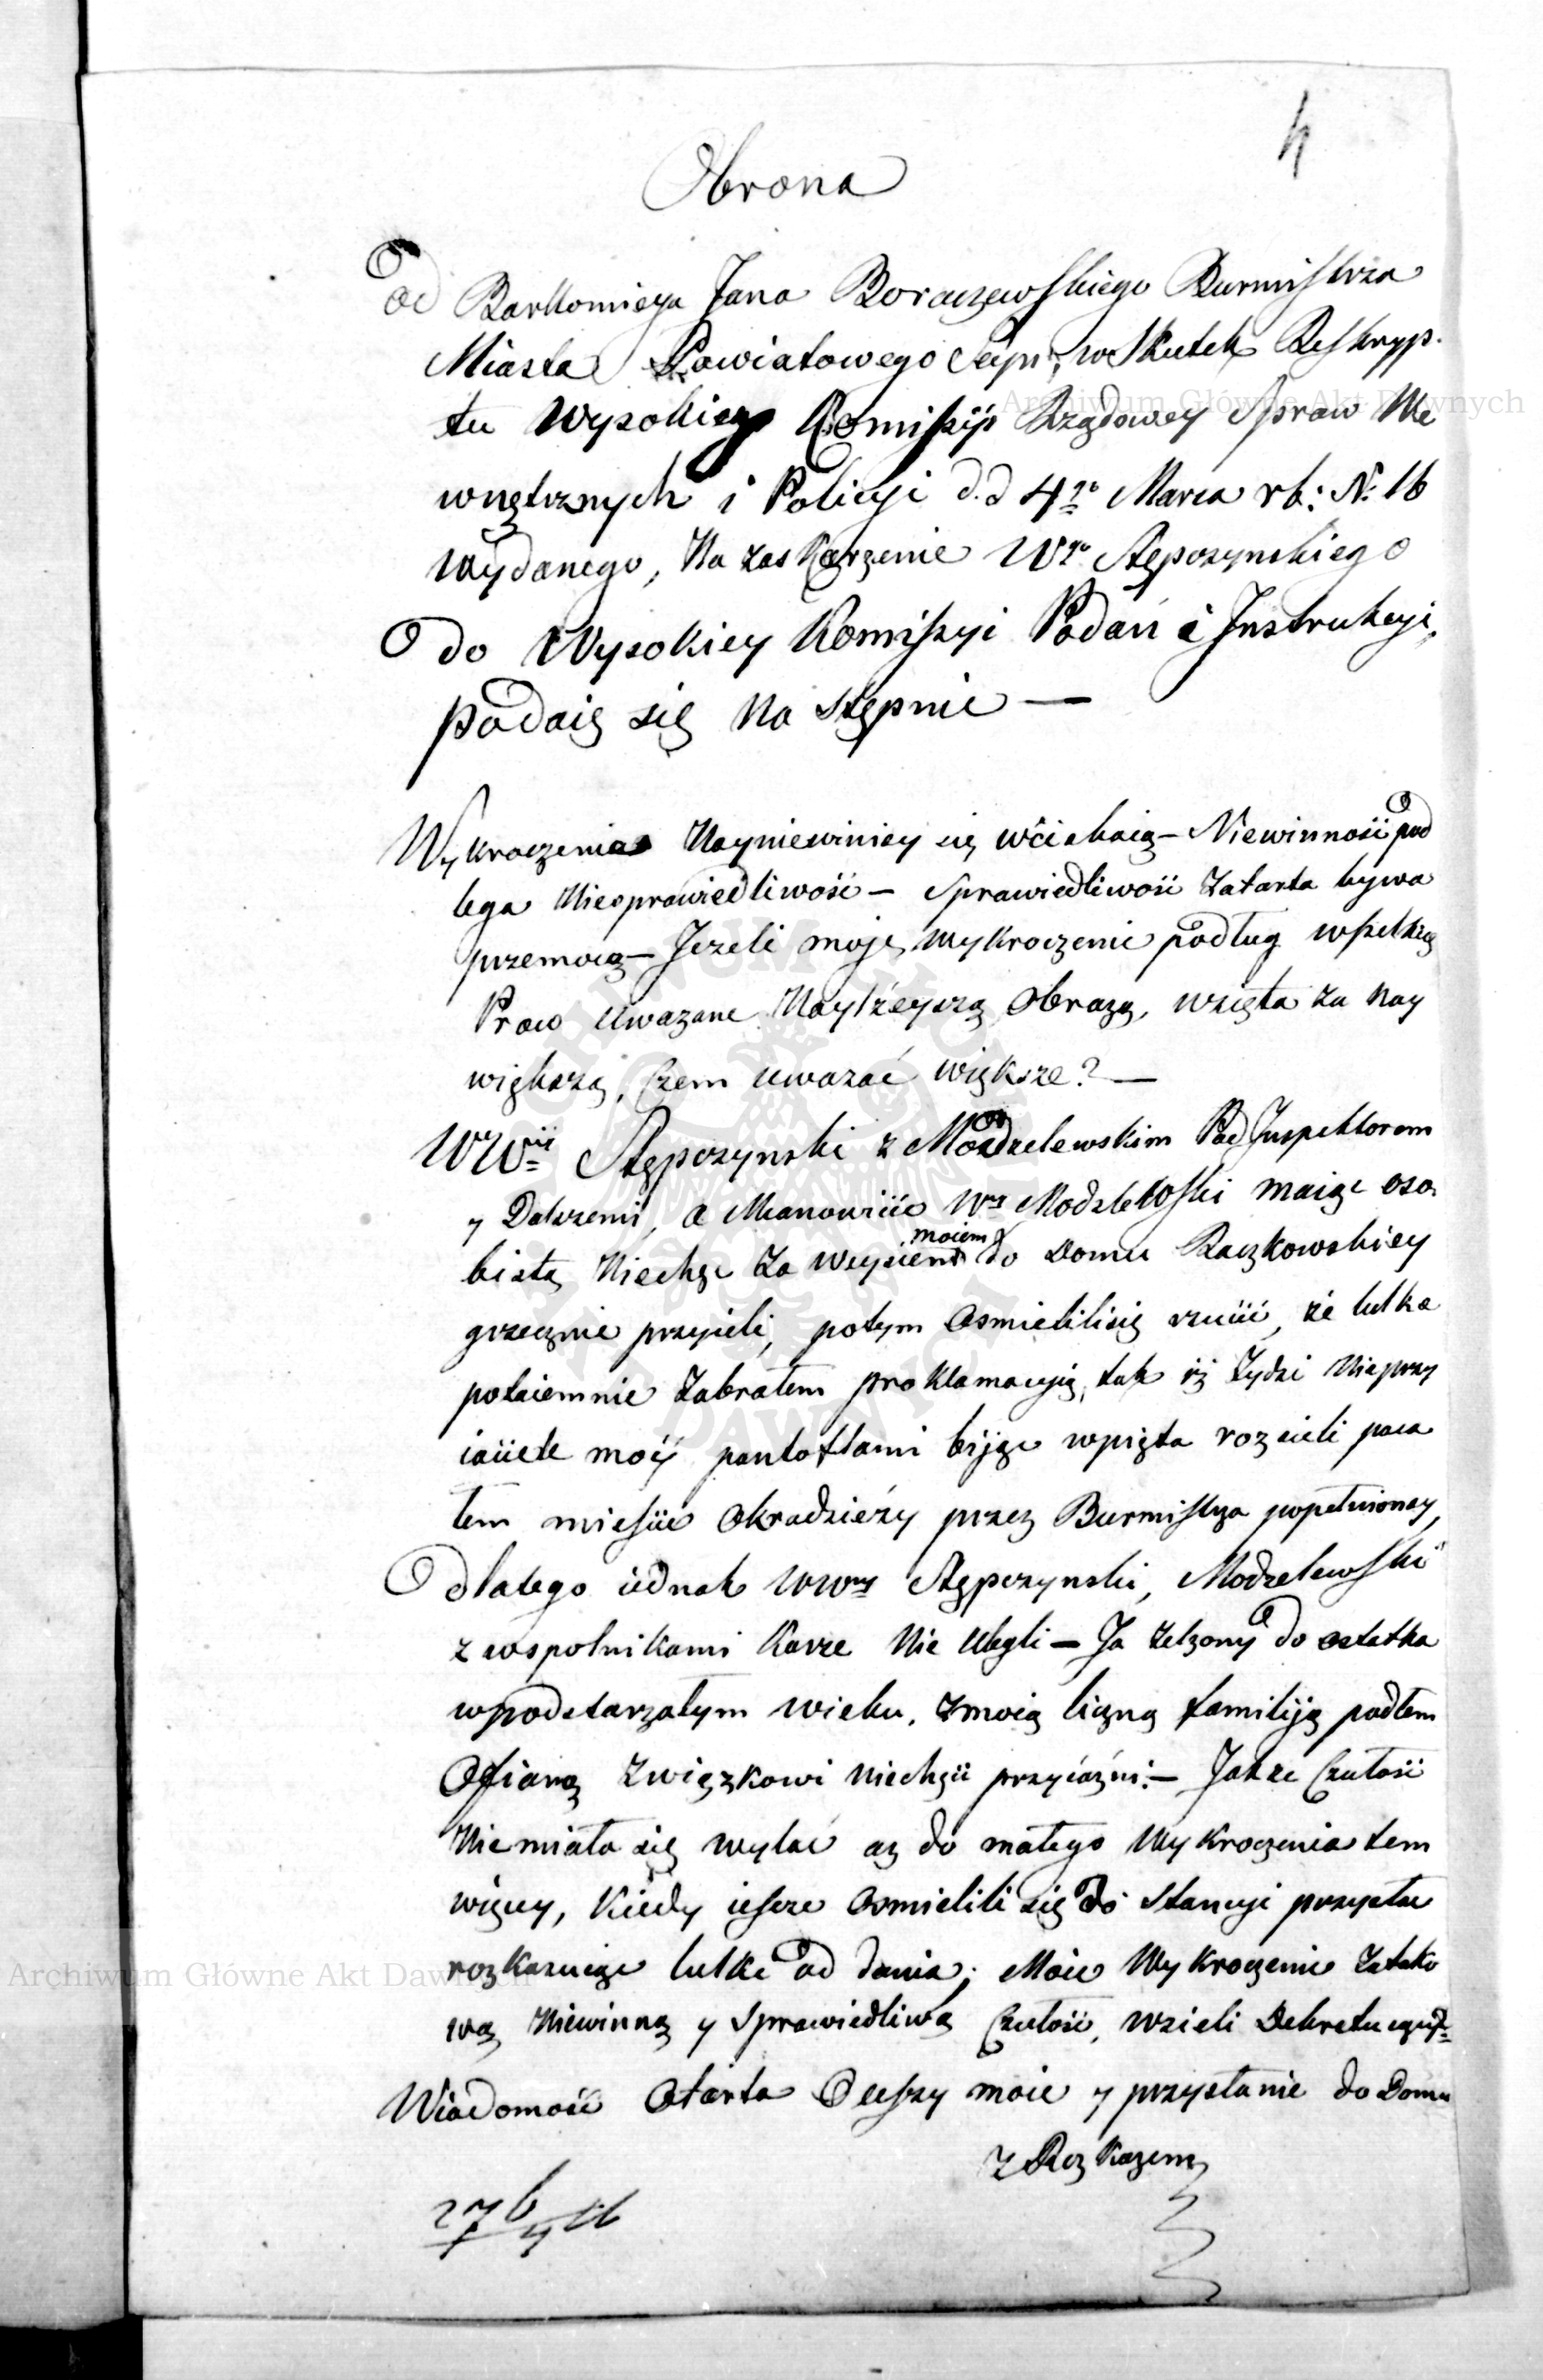 4
Obrona
Od Bartłomieja Jana Boraczewskiego Burmistrza
Miasta Powiatowego Sejn; w Skutek Reskryp-
tu Wysokiego Komissyi Rządowey Spraw We
wnętrznych i Policyi d.d 4go Marca rb: N: 16
wydanego, Na zaskarzenie Wgo Stępczynskiego
do Wysokiey Komissyi Podań i Instrukcyi,
podaię się Na stępnie —
Wykroczenia Nayniewiniey się wciskaią — Niewinność pod
lega Niesprawiedliwość — Sprawiedliwość Zatarta bywa
przemocą — Jezeli moje wykroczenie podług wszelkich
Praw uwazane Naylżeyszą Obrazą, wzięta za Nay
większą, Czem uwazać większe? —
WWnii Stępczynski z Modzelewskim Pod Inspektorem
y Dalszemi, a Mianowicie Wny Modzelewski maiąc oso
bistą Niechęć Za weyściem moiem do Domu Raczkowskiey
grzecznie przyieli, potym Osmielili się rzucić, że lulkę
potaiemnie Zabrałem proklamacyią, tak iż Żydzi Nieprzy
iaciele moii pantoflami biiąc w pięta rozsieli poca
łem mieście Okradzieży przez Burmistrza popełnioney,
dlatego iednak WWny Stępczynski, Modzelewski
z wspolnikami Karze Nie Ulegli — Ja Zelzony do ostatka
w podstarzałym wieku, z moią liczną familiją padłem
Ofiarą Związkowi Niechęci przyiaźni: — Jakze Czułość
Nie miała się wylać az do małego Wykroczenia tem
więcy, Kiedy ieszcze Osmielili się do Stancyi przysłać
rozkazuiąc lulkę od dania; Moie Wykroczenie Zatako
wą Niewinną y Sprawiedliwą Czułość, wzieli
Wiadomość Otarta O Uszy moie y przysłanie do Domu
z Rozkazem
Archiwum Główne Akt Dawnych
Archiwum Główne Akt Dawnych